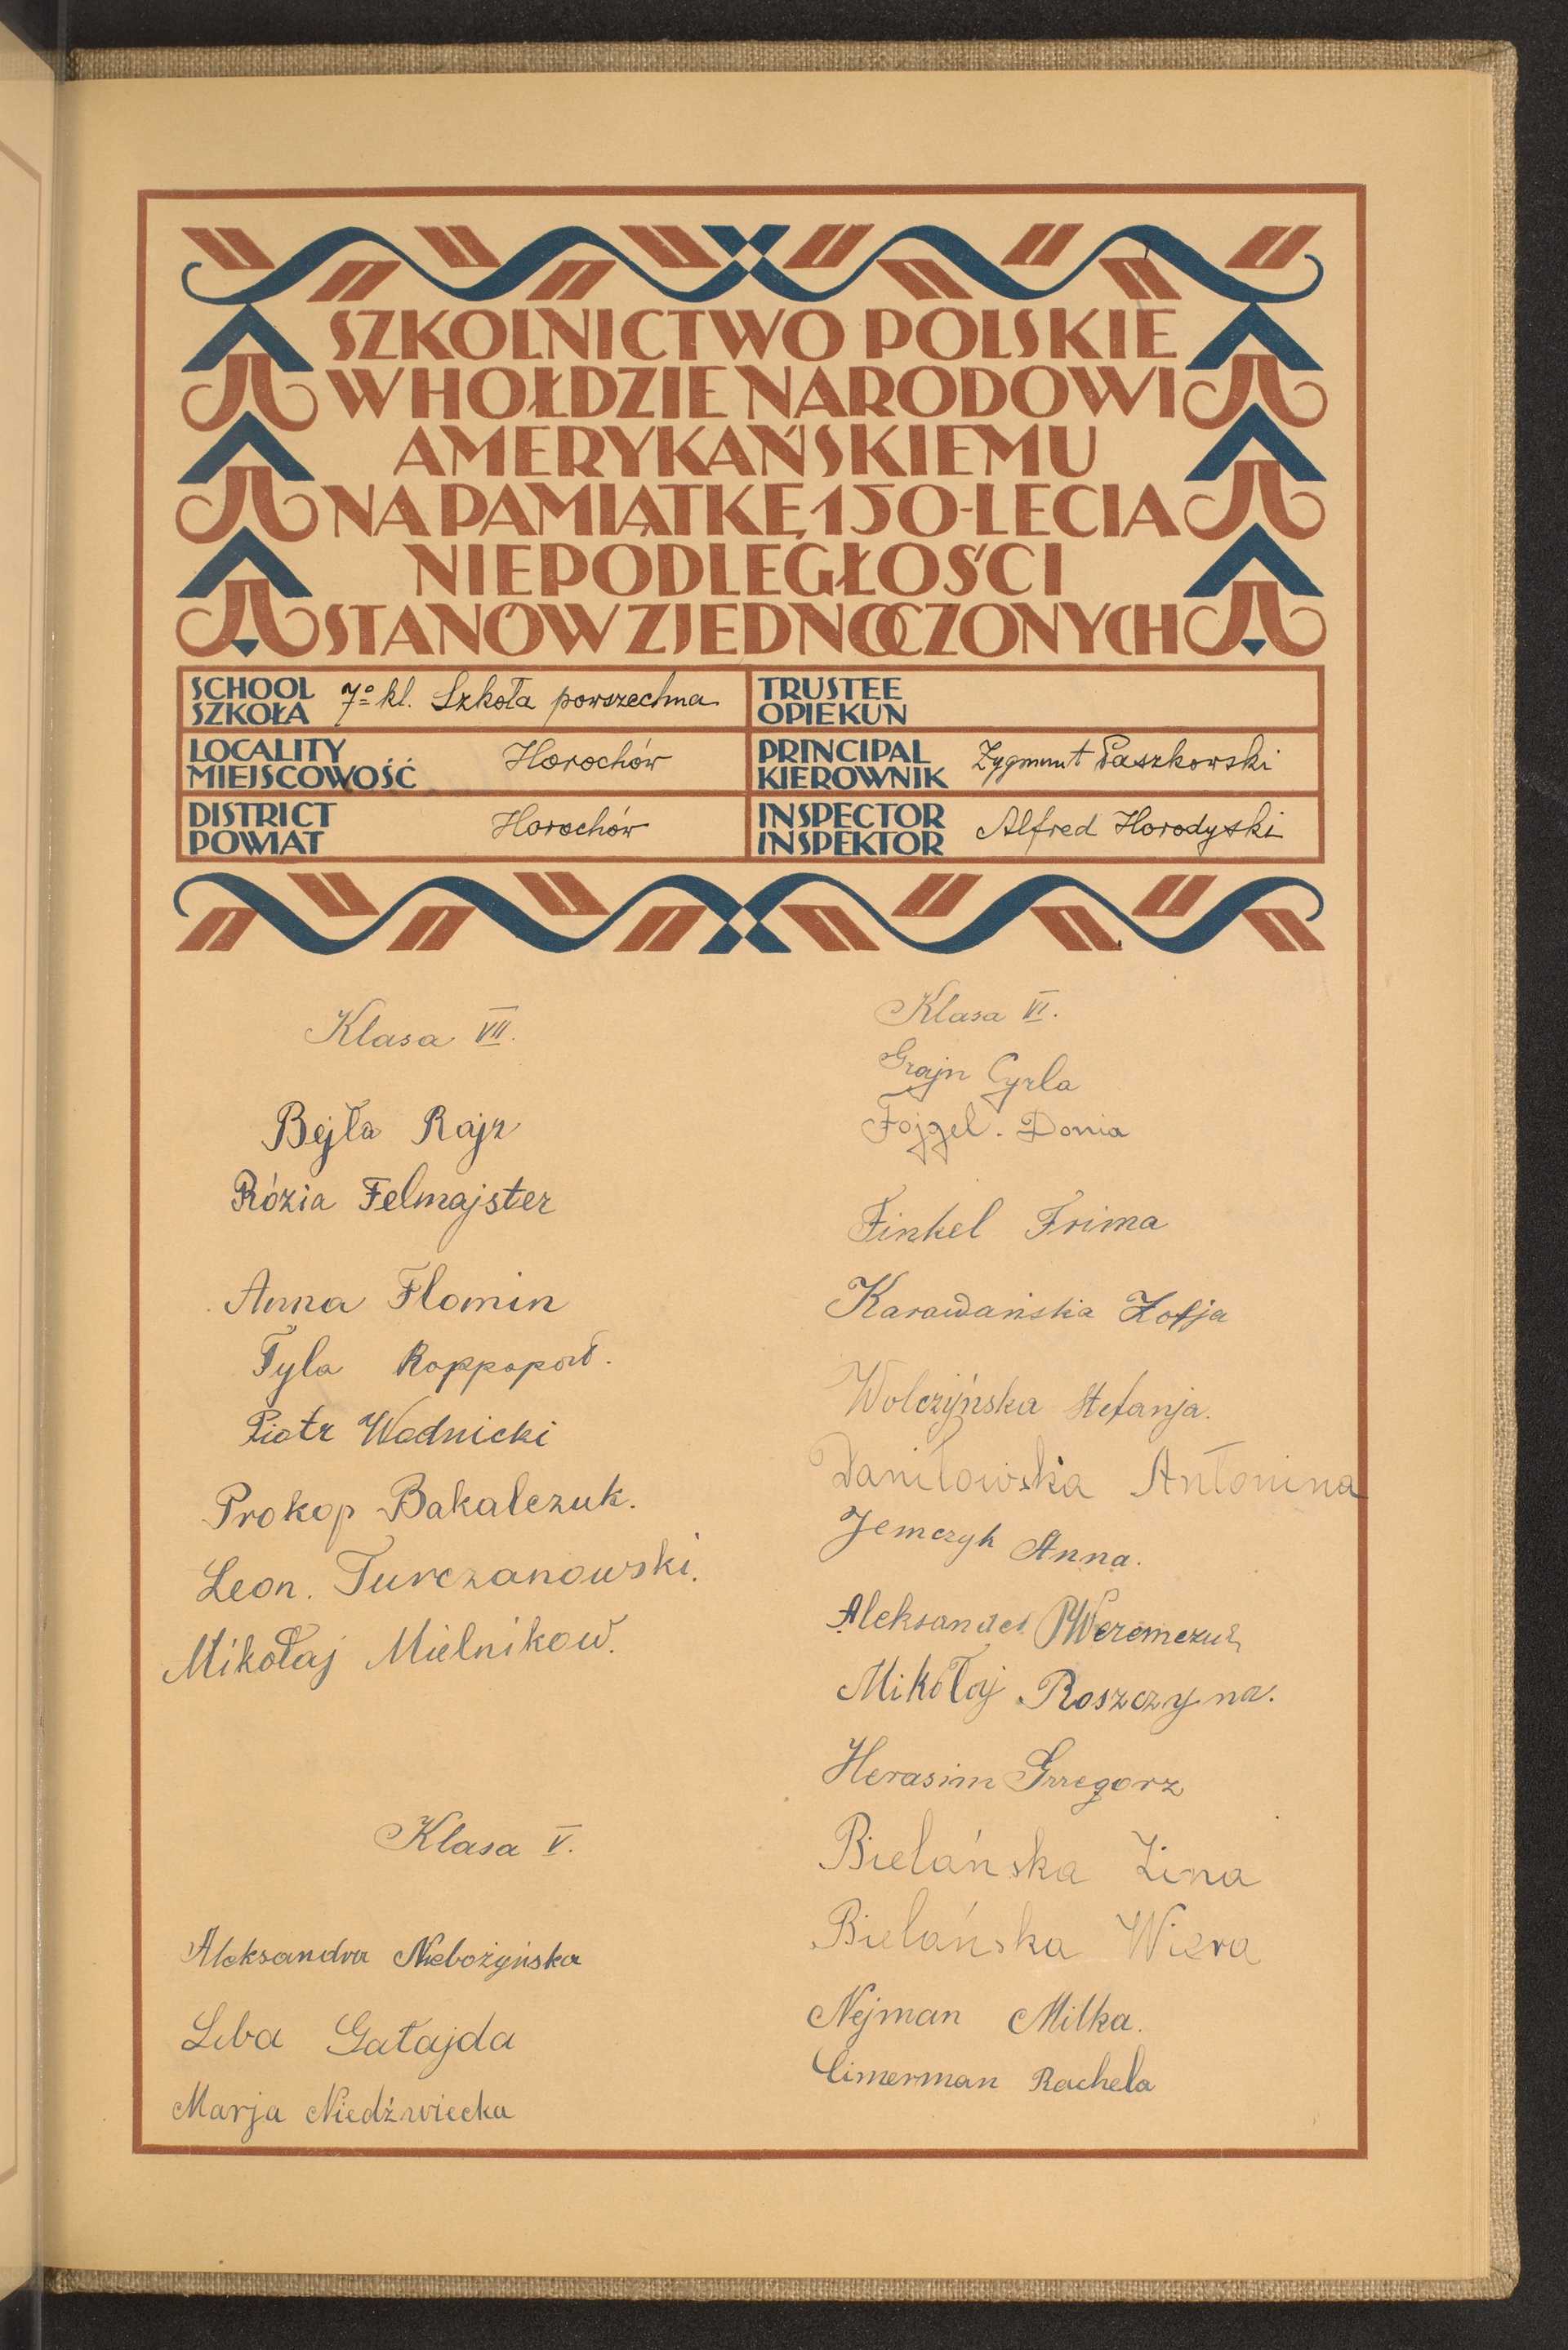 SZKOLNICTWO POLSKIE
W HOŁDZIE NARODOWI
AMERYKAŃSKIEMU
NA PAMIĄTKĘ 150-LECIA
NIEPODLEGŁOŚCI
STANÓW ZJEDNOCZONYCH
SCHOOL
SZKOŁA
7º kl. Szkoła powszechna
TRUSTEE
OPIEKUN
LOCALITY
MIEJSCOWOŚĆ
Horochów
PRINCIPAL
KIEROWNIK
Zygmunt Paszkowski
DISTRICT
POWIAT
Horochów
INSPECTOR
INSPEKTOR
Alfred Horodyski
Klasa VII.
Bejła Rajz
Rózia Felmajster
Anna Flomin
Tyla Roppoport.
Piotr Wodnicki
Prokop Bakalczuk.
Leon. Turczanowski.
Mikołaj Mielnikow.
Klasa V.
Aleksandra Niebożyńska
Liba Gałajda
Marja Niedźwiecka
Klasa VI.
Grajn Cyrla
Fojgel. Donia
Finkel Frima
Karawańska Zofja
Wolczyńska Stefanja.
Daniłowska Antonina
Jemczyk Anna.
Aleksander Weremczuk
Mikołaj Roszczyna.
Herasim Grzegorz
Bielańska Zina
Bielańska Wiera
Nejman Milka.
Cimerman Rachela